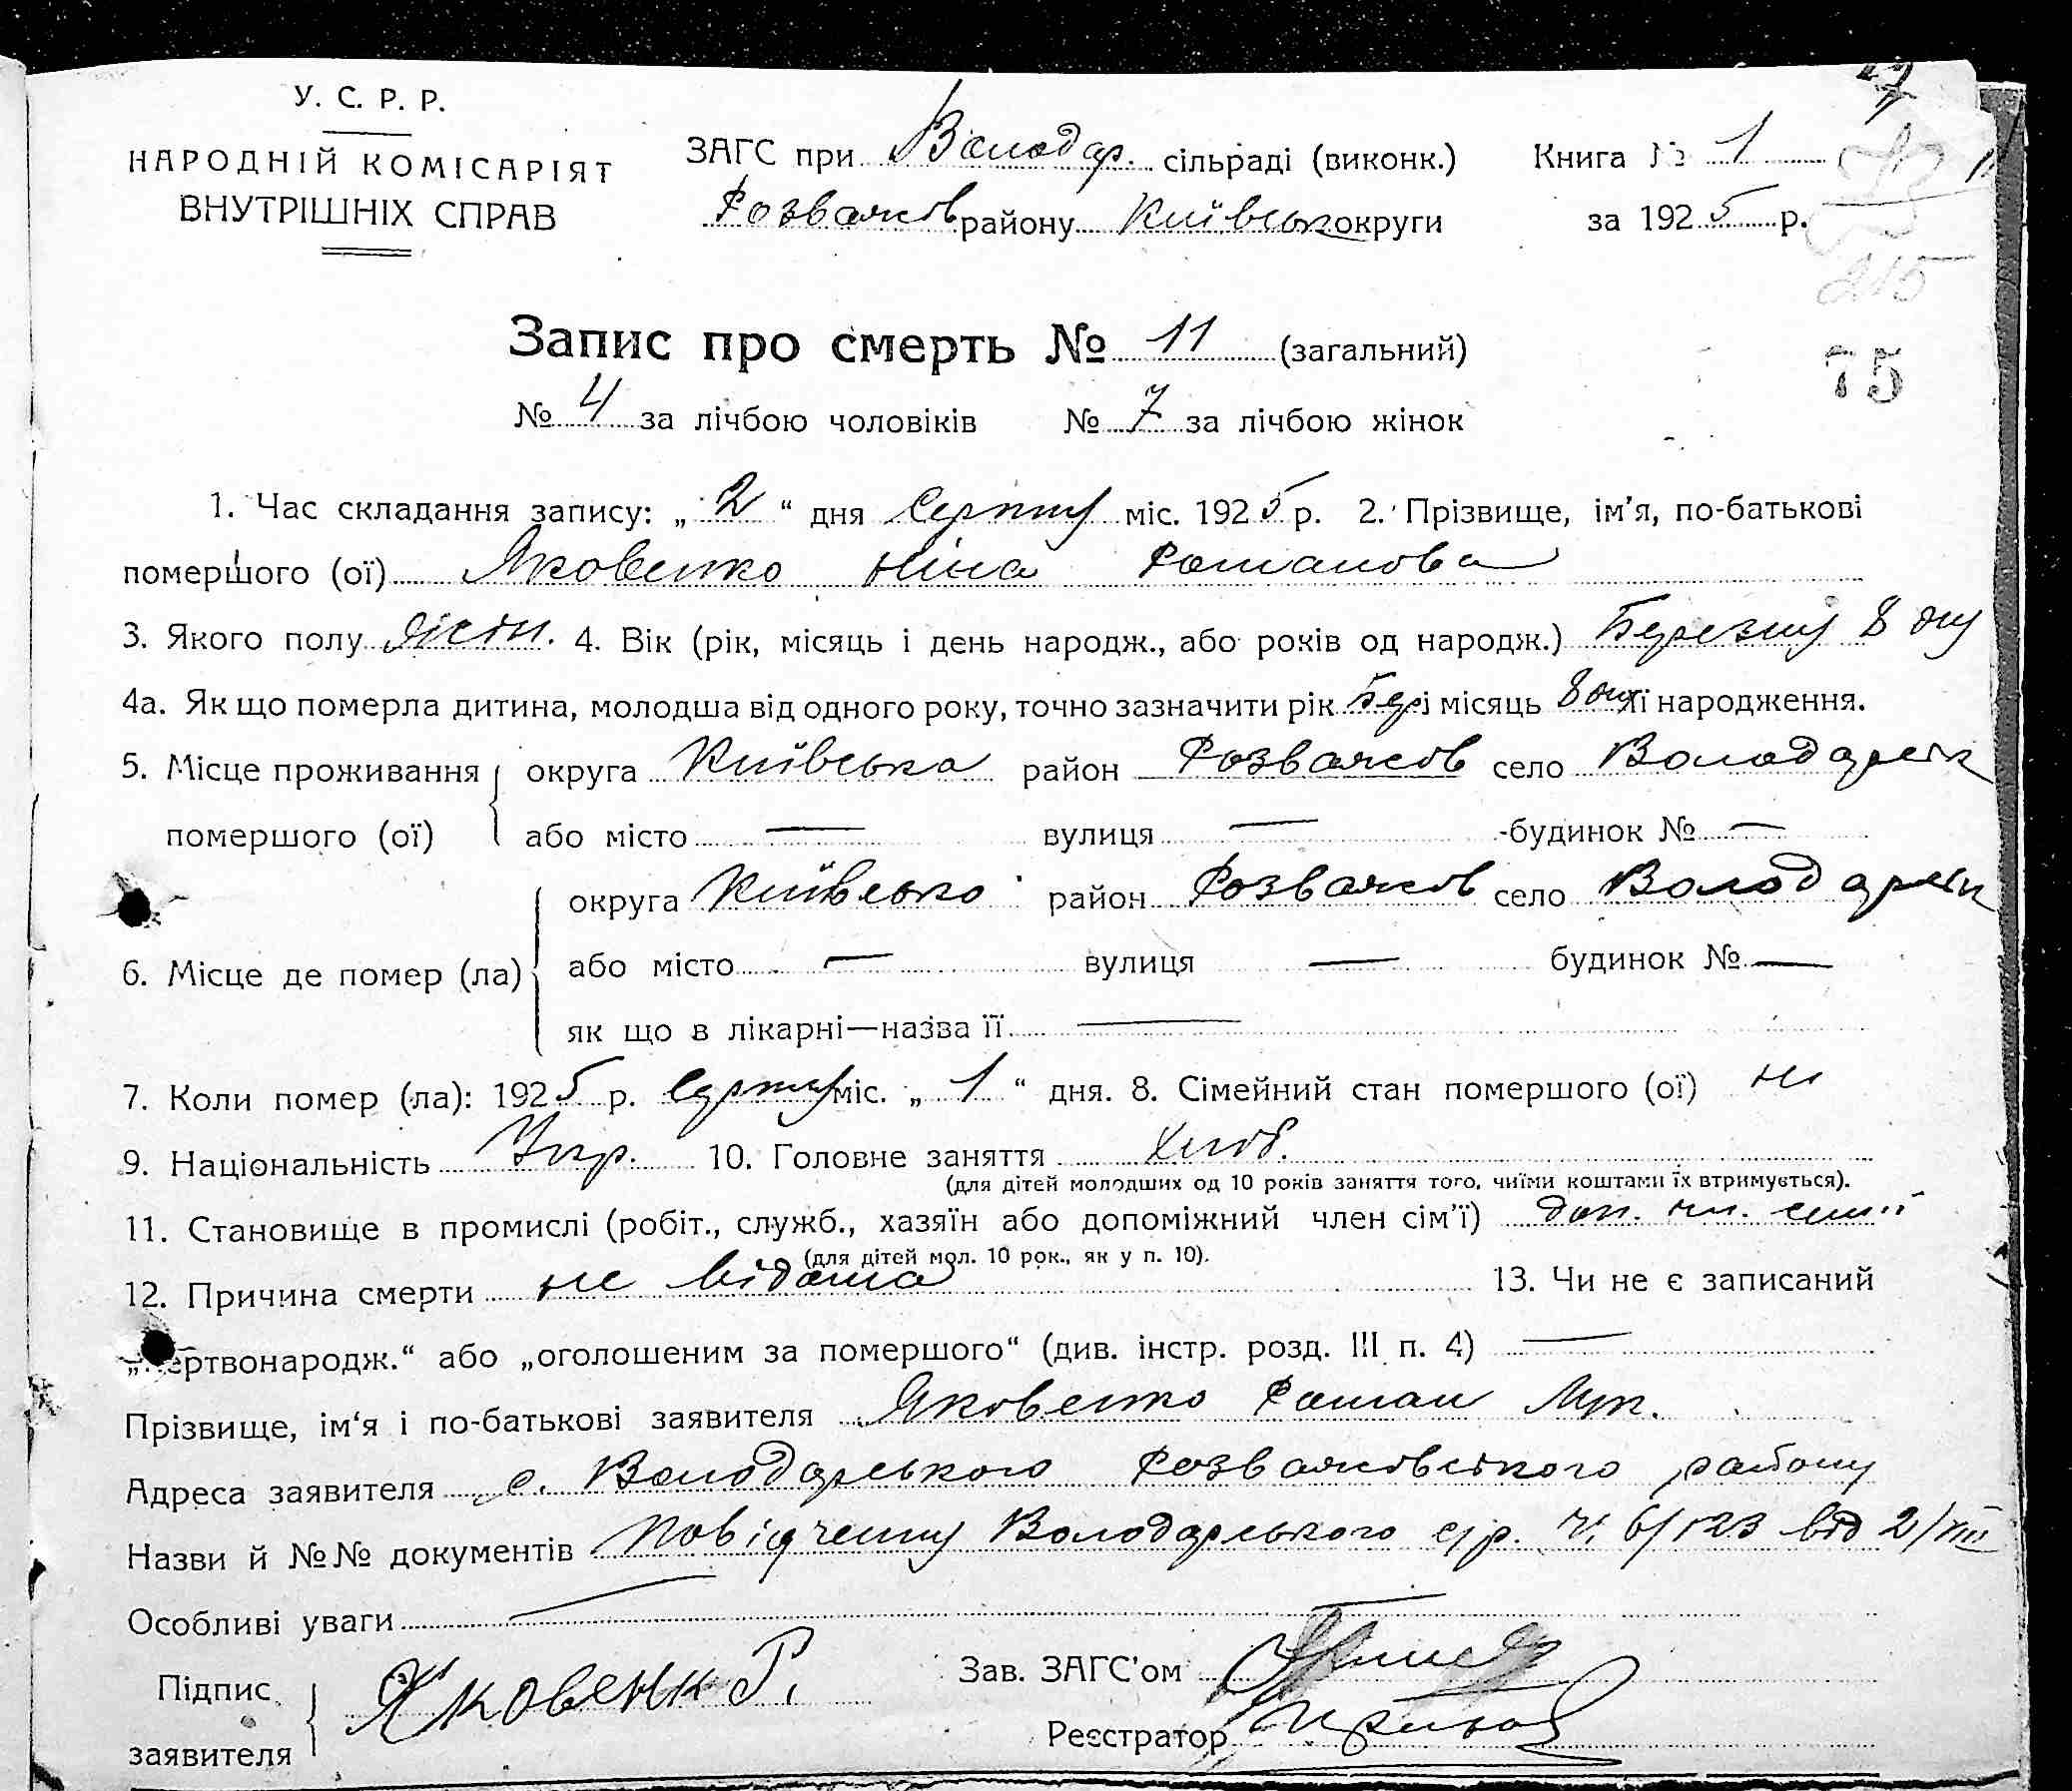 У. С. Р. Р.
НАРОДНІЙ КОМІСАРІЯТ
ВНУТРІШНІХ СПРАВ
ЗАГС при Володар. сільраді (виконк.)
Розважів району Київськ округи
Книга № 1
за 1925 р.
215
75
Запис про смерть № 11 (загальний)
№ 4 за лічбою чоловіків № 7 за лічбою жінок
1. Час складання запису: „2“ дня Серпня міс. 1925 р. 2. Прізвище, ім'я, по-батькові
помершого (ої) Яковенко Ніна Романова
3. Якого полу 4. Вік (рік, місяць і день народж., або років од народж.) Березня 8 дня
4а. Як що померла дитина, молодша від одного року, точно зазначити рік Бер і місяць 8 дня її народження.
5. Місце проживання округа Київська район Розважів село Володарськ
помершого (ої) або місто — вулиця — будинок № —
округа Київська район Розважів село Володарськ
6. Місце де помер (ла) або місто — вулиця — будинок № —
як що в лікарні—назва її —
7. Коли помер (ла): 1925 р. Серпня міс. „1“ дня. 8. Сімейний стан помершого (ої)
9. Національність Укр. 10. Головне заняття Хліб.
(для дітей молодших од 10 років заняття того, чиїми коштами їх втримується).
11. Становище в промислі (робіт., служб., хазяїн або допоміжний член сім'ї) доп. чл. сим'ї
(для дітей мол. 10 рок., як у п. 10).
12. Причина смерти не відома 13. Чи не є записаний
„мертвонародж.“ або „оголошеним за помершого“ (див. інстр. розд. III п. 4) —
Прізвище, ім'я і по-батькові заявителя Яковенко Роман
Адреса заявителя с. Володарського Розважівського району
Назви й №№ документів Посвідчення Володарського с/р. Ч. 6/123 від 2/VIII
Особливі уваги —
Підпис заявителя Яковенк Р.
Зав. ЗАГС'ом
Реєстратор